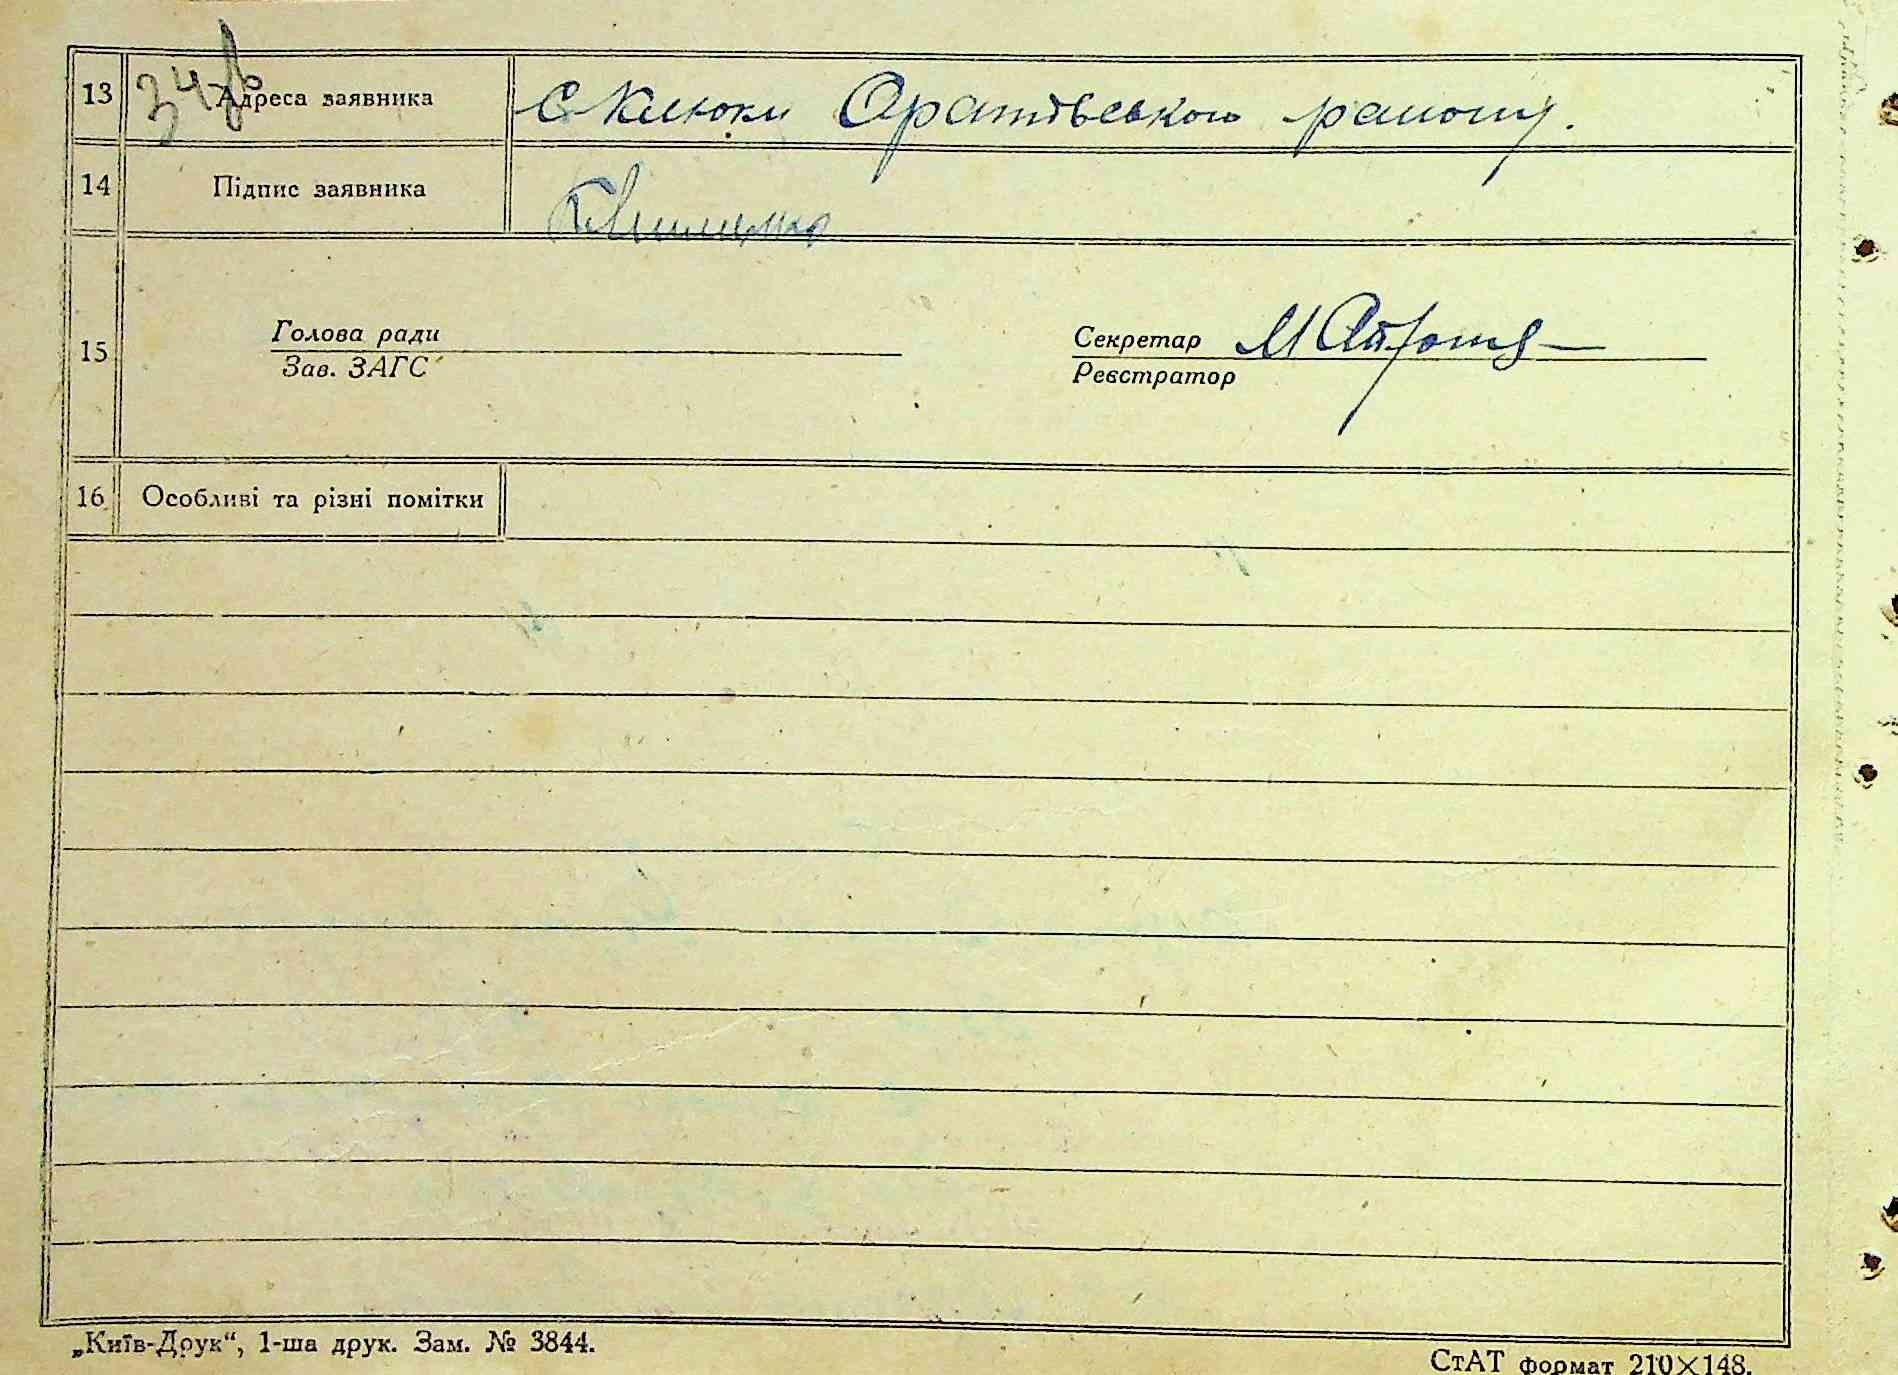 34
13 Адреса заявника с Клюки Оратівського району.
14 Підпис заявника
Голова ради Секретар
15
Зав. ЗАГС Реєстратор
16 Особливі та різні помітки
„Київ-Друк“, 1-ша друк. Зам. № 3844.
СтАТ формат 210×148.